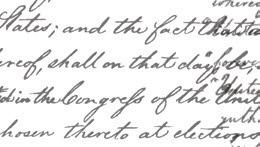 States; and the fact that a
ereof, shall on that day, be,
in the Congress of the Unit
hosen thereto at elections